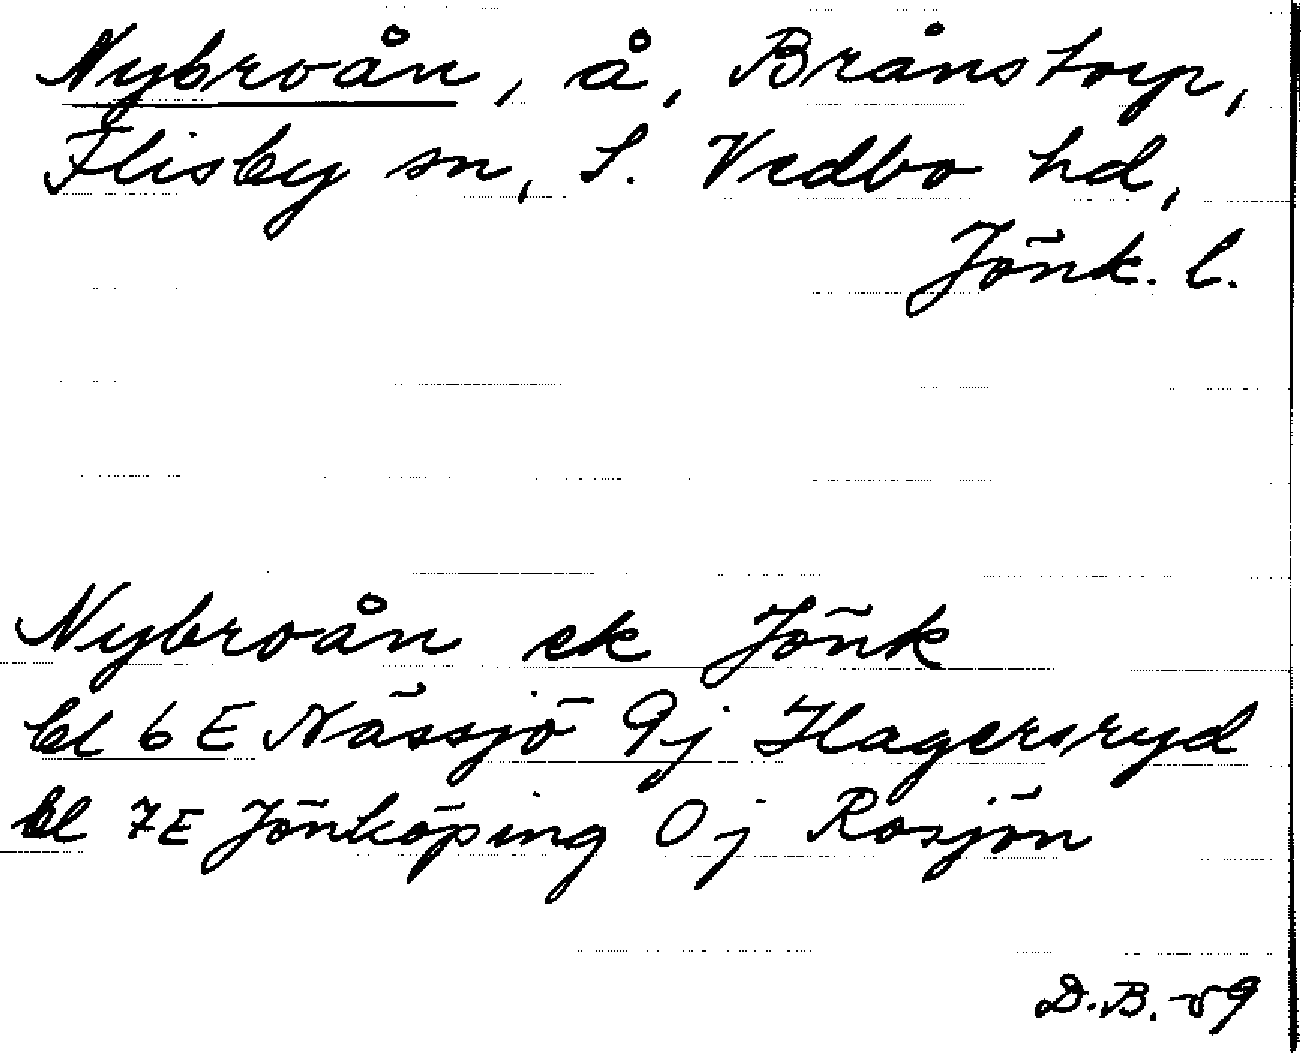 Nybroån, å, Brånstorp,
Flisby sn, S. Vedbo hd,
Jönk. l.
Nybroån ek Jönk
bl 6 E Nässjö 9j Hagersryd
bl 7E Jönköping 0j Rosjön
D.B.